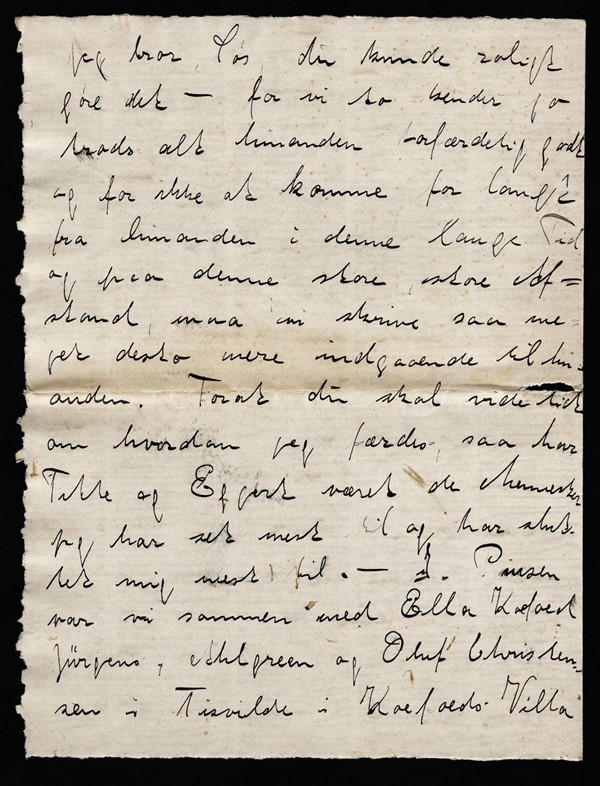 jeg tror, Løs, du kunde roligt
gøre det — for vi to kender jo
trods alt hinanden forfærdelig godt
og for ikke at komme for langt
fra hinanden i denne lange Tid
og paa denne store, store Af=
stand, maa vi skrive saa me-
get desto mere indgaaende til hin-
anden. Forat du skal vide lidt
om hvordan jeg færdes, saa har
Titte og Eggert været de Mennesker
jeg har set mest til og har slut-
tet mig mest til. — I. Pinsen
var vi sammen med Ella Kofoed
Jürgens, Ahlgreen og Oluf Christen-
sen i Tisvilde i Koefoeds Villa